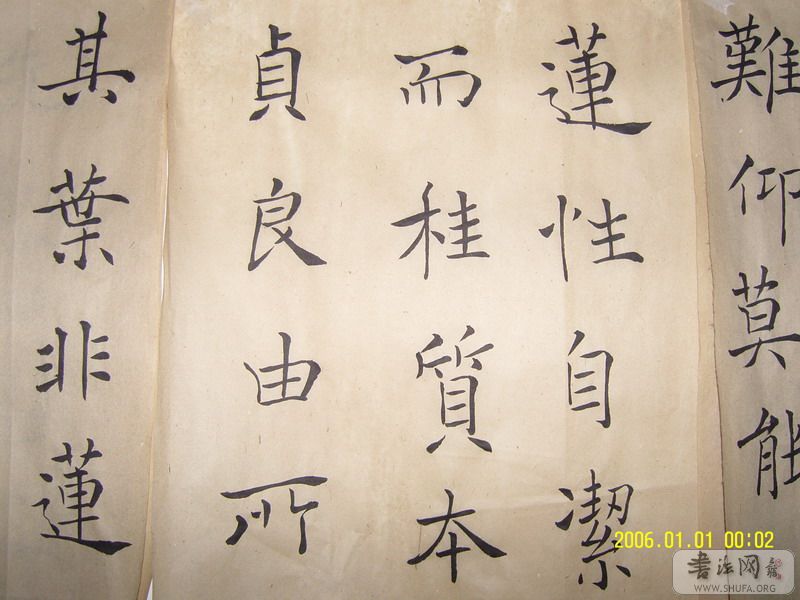 難仰莫能
蓮性自潔
而桂質本
貞良由所
其葉非蓮
2006.01.01 00:02
书法网
WWW.SHUFA.ORG